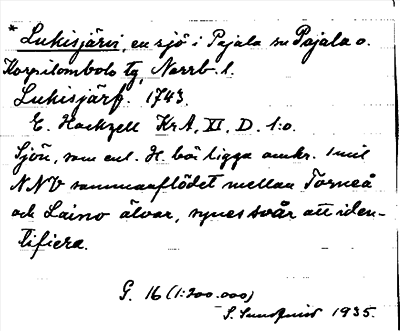 * Lukisjärvi, en sjö i Pajala sn Pajala o.
Korpilombolo tg, Norrb. l.
Lukisjärf. 1743.
E. Hackzell KrA, XI, D. 1:o.
Sjön, som enl. H. bör ligga omkr. 1 mil
NNV sammanflödet mellan Torneå
och Laino älvar, synes svår att iden-
tifiera.
G. 16 (1:200.000)
S. Sundqvist 1935.